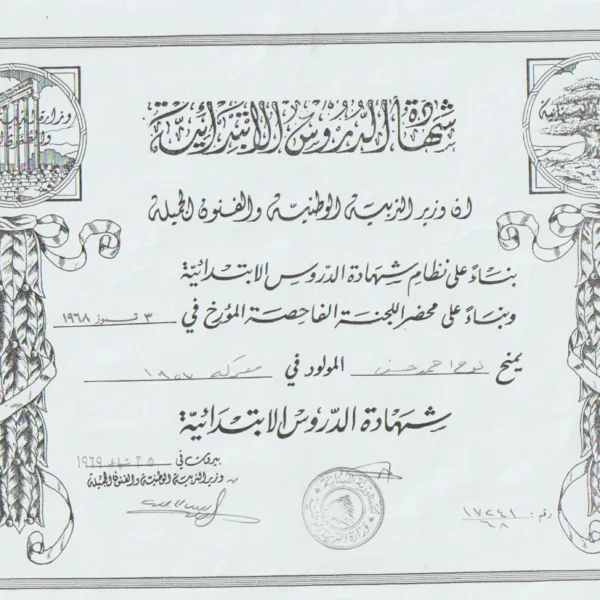 شهادة الدروس الابتدائية
ان وزير التربية الوطنية والفنون الجميلة
بناءً على نظام شهادة الدروس الابتدائية
وبناءً على محضر اللجنة الفاحصة المؤرخ في ٣ تموز ١٩٦٨
يمنح احمد حسن المولود في معركه ١٩٥٧
شهادة الدروس الابتدائية
بيروت في ٢٥ شباط ١٩٦٩
وزير التربية الوطنية والفنون الجميلة
رقم: ١٧٢٤١
٦٨